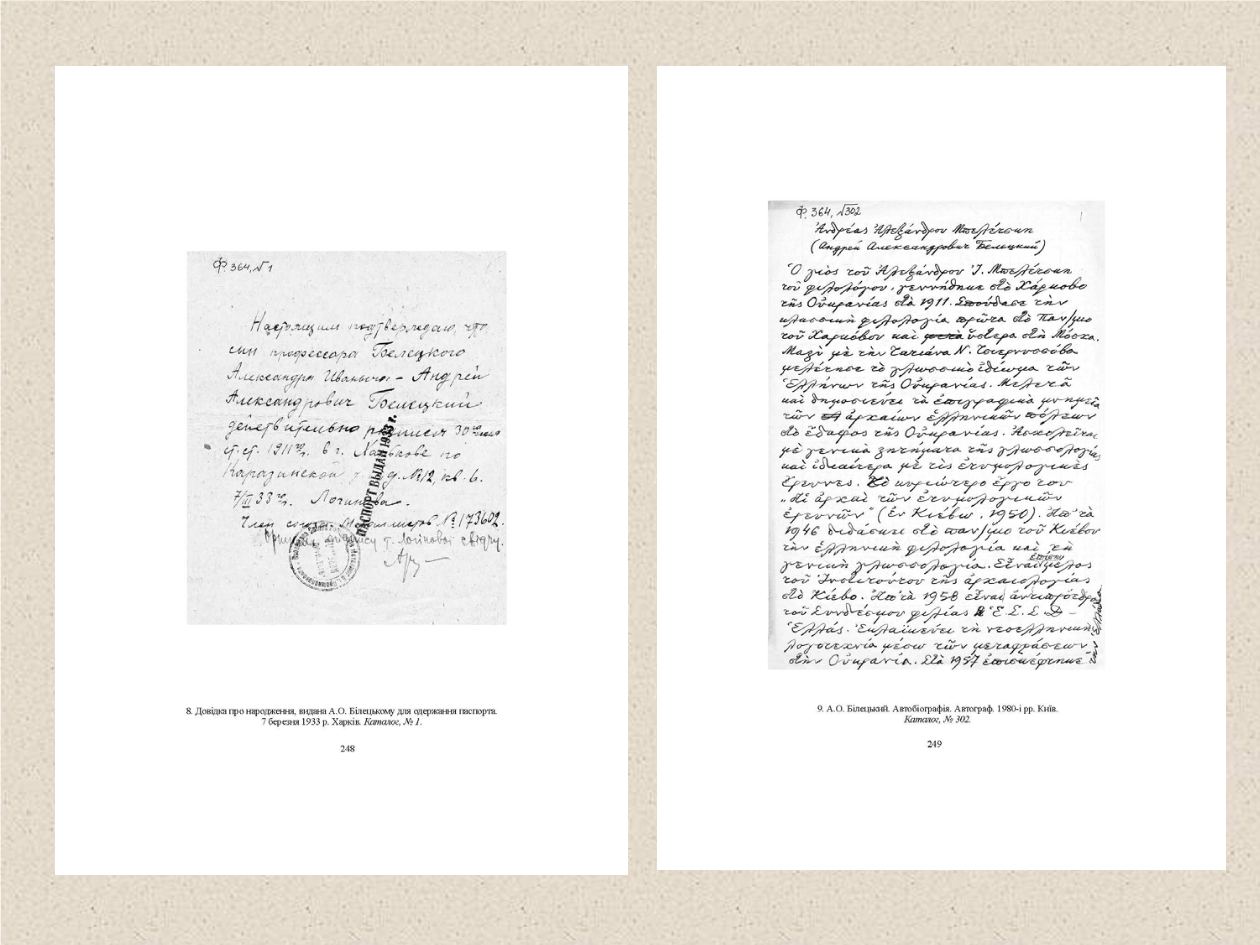 Ф. 364, №1
Настоящим подтверждаю, что
сын профессора Белецкого
Александра Иваныча – Андрей
Александрович Белецкий
действительно родился 30
ст.ст. 1911 г. в г. Харькове по
Каразинской д. №12, кв. 6.
7/III 33 г. Логинова.
Член союза №173602.
підпису т. Логінової свідчу.
ПАСПОРТ ВЫДАН 1933 г.
8. Довідка про народження, видана А.О. Білецькому для одержання паспорта.
7 березня 1933 р. Харків. Каталог, № 1.
248
Ф. 364, №302
1
Ἀνδρέας Ἀλεξάνδρου Μπελέτσκη
(Андрей Александрович Белецкий)
Ὁ γιος τοῦ Ἀλεξάνδρου Ἰ. Μπελέτσκη
τοῦ φιλολόγου, γεννήθηκε στὸ Χάρκοβο
τῆς Οὐκρανίας στὰ 1911. Σπούδασε τὴν
κλασσικὴ φιλολογία πρῶτα στὸ Παν/μιο
τοῦ Χαρκόβου καὶ ὕστερα στὴ Μόσχα.
Μαζὺ μὲ τὴν Τατιάνα Ν. Τσερνυσσόβα
μελέτησε τὸ γλωσσικὸ ἰδίωμα τῶν
Ἑλλήνων τῆς Οὐκρανίας. Μελετᾶ
καὶ δημοσιεύει τὰ ἐπιγραφικὰ μνημεῖα
τῶν ἀρχαίων ἑλληνικῶν πόλεων
στὸ ἔδαφος τῆς Οὐκρανίας. Ἀσχολεῖται
μὲ γενικὰ ζητήματα τῆς γλωσσολογίας
καὶ ἰδιαίτερα μὲ τὶς ἐτυμολογικὲς
ἔρευνες. Τὸ κυριώτερο ἔργο του
„Αἱ ἀρχαὶ τῶν ἐτυμολογικῶν
ἐρευνῶν" (ἐν Κιέβῳ, 1950). Ἀπ' τὰ
1946 διδάσκει στὸ παν/μιο τοῦ Κιέβου
τὴν ἑλληνικὴ φιλολογία καὶ τὴ
γενικὴ γλωσσολογία. Εἶναι ἐπίσης μέλος
τοῦ Ἰνστιτούτου τῆς ἀρχαιολογίας
στὸ Κίεβο. Ἀπ' τὰ 1958 εἶναι ἀντιπρόεδρος
τοῦ Συνδέσμου φιλίας Ἑ.Σ.Σ.Δ –
Ἑλλάς. Ἐκλαϊκεύει τὴ νεοελληνικὴ
λογοτεχνία μέσω τῶν μεταφράσεων
στὴν Οὐκρανία. Στὰ 1957 ἐπισκέφτηκε
τὴν Ἑλλάδα
9. А.О. Білецький. Автобіографія. Автограф. 1980-і рр. Київ.
Каталог, № 302.
249